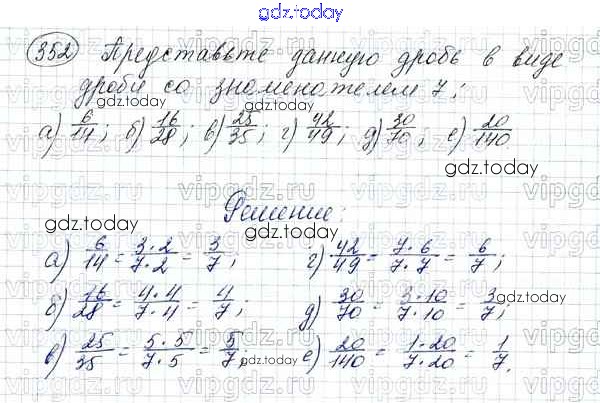 gdz.today
352 Представьте данную дробь в виде
дроби со знаменателем 7:
gdz.today
а) 6/14; б) 16/28; в) 25/35; г) 42/49; д) 30/70; е) 20/140.
gdz.today
Решение:
gdz.today
а) 6/14 = 3·2/7·2 = 3/7; г) 42/49 = 7·6/7·7 = 6/7;
б) 16/28 = 4·4/7·4 = 4/7; д) 30/70 = 3·10/7·10 = 3/7;
gdz.today
в) 25/35 = 5·5/7·5 = 5/7; е) 20/140 = 1·20/7·20 = 1/7.
gdz.today